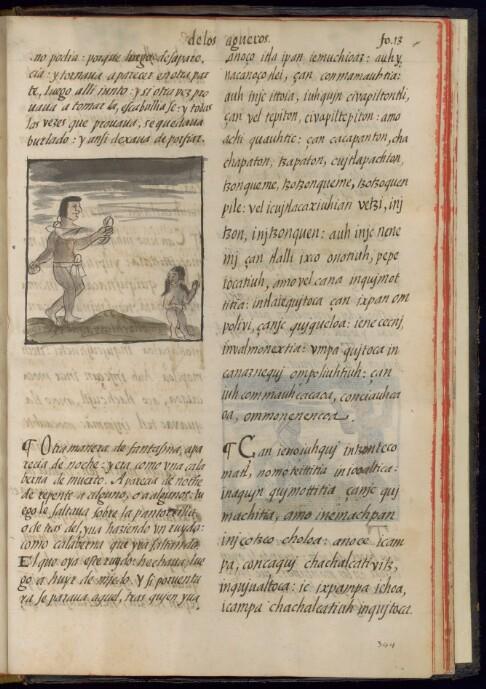 de los agueros.
fo. 13
no podia: porque luego desaparecia
cia: y tornaua a aparecer en otra par
te, luego alli junto: y si otra vez pro
uaua a tomarla, escabullia se: y todas
las vezes que prouaua, se quedaua
burlado: y ansi dexaua de porfiar.
¶ Otra manera de fantasma, apa
recia de noche: y era como vna cala
berna de muerto. Aparecia de noche
de repente a alguno, o a algunos: lu
ego le saltaua sobre la pantorrilla,
o detras del, yua haziendo vn ruydo:
como calaberna que yua saltando.
El que oya este ruydo: hechaua, lue
go a huyr de miedo. Y si por uentu
ra se paraua aquel, tras quien yua
anoço itla ipan iemuchioaz: auh, y,
nacanoço tlei, çan conmamauhtia:
auh injc ittoia, iuhqujn civapiltontli,
çan vel tepiton, civapiltepiton: amo
achi quauhtic: çan cacapanton, cha
chapaton, tzapaton, cujtlapachton,
tzonqueme, tzotzonqueme, tzotzoquen
pile: vel icujtlacaxiuhian vetzi, inj
tzon, injtzonquen: auh injc nene
mj çan tlalli ixco onotiuh, pepe
tocatiuh, amo vel cana inqujmot
titia: intlaiequjtoca çan ixpan om
polivi, çanjc qujqueloa: ie ne cecnj,
invalmonextia: vmpa qujtoca in
canaznequj ompolihuhtiuh: çan
iuh commauhcacaoa, conciauhca
oa, ommonenencoa.
¶ Çan ie no iuhquj intzonteco
matl, no moteittitia in iooaltica:
inaqujn qujmottitia çanjc quj
machitia, amo ineinachpan
injcotzco choloa: anoce icam
pa, concaquj chachalcativitz,
inqujvaltoca: ic ixpampa iehoa,
icampa chachalcatiuh inqujtoca.
344